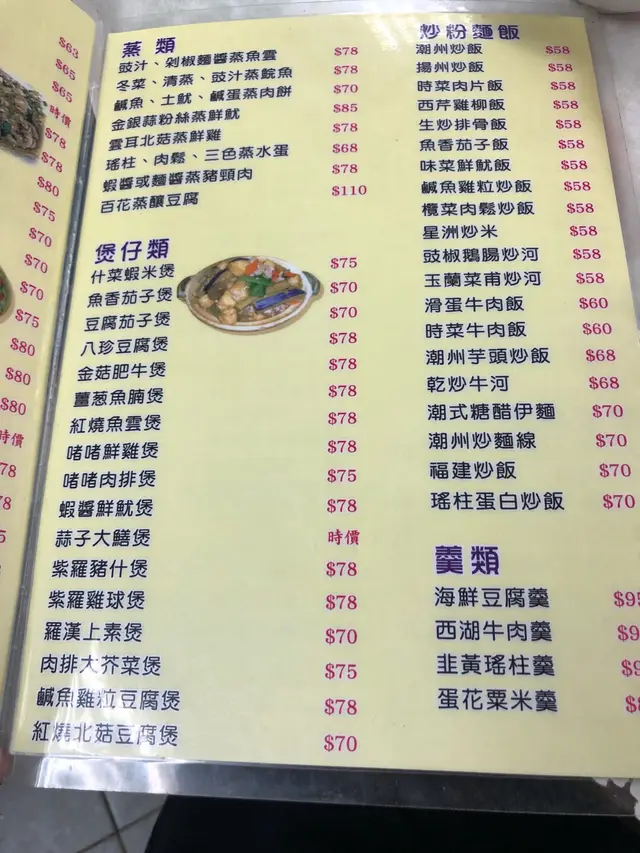 $63
$65
$65
時價
$78
$78
$80
$75
$70
$70
$70
$75
$80
$80
$80
時價
蒸類
豉汁、剁椒麵醬蒸魚雲 $78
冬菜、清蒸、豉汁蒸鯇魚 $78
鹹魚、土魷、鹹蛋蒸肉餅 $70
金銀蒜粉絲蒸鮮魷 $85
雲耳北菇蒸鮮雞 $78
瑤柱、肉鬆、三色蒸水蛋 $68
蝦醬或麵醬蒸豬頸肉 $78
百花蒸釀豆腐 $110
煲仔類
什菜蝦米煲 $75
魚香茄子煲 $70
豆腐茄子煲 $70
八珍豆腐煲 $78
金菇肥牛煲 $78
薑葱魚腩煲 $78
紅燒魚雲煲 $78
啫啫鮮雞煲 $78
啫啫肉排煲 $75
蝦醬鮮魷煲 $78
蒜子大鱔煲 時價
紫羅豬什煲 $78
紫羅雞球煲 $78
羅漢上素煲 $70
肉排大芥菜煲 $75
鹹魚雞粒豆腐煲 $78
紅燒北菇豆腐煲 $70
炒粉麵飯
潮州炒飯 $58
揚州炒飯 $58
時菜肉片飯 $58
西芹雞柳飯 $58
生炒排骨飯 $58
魚香茄子飯 $58
味菜鮮魷飯 $58
鹹魚雞粒炒飯 $58
欖菜肉鬆炒飯 $58
星洲炒米 $58
豉椒鵝腸炒河 $58
玉蘭菜甫炒河 $58
滑蛋牛肉飯 $60
時菜牛肉飯 $60
潮州芋頭炒飯 $68
乾炒牛河 $68
潮式糖醋伊麵 $70
潮州炒麵線 $70
福建炒飯 $70
瑤柱蛋白炒飯 $70
羹類
海鮮豆腐羹
西湖牛肉羹
韭黃瑤柱羹
蛋花粟米羹